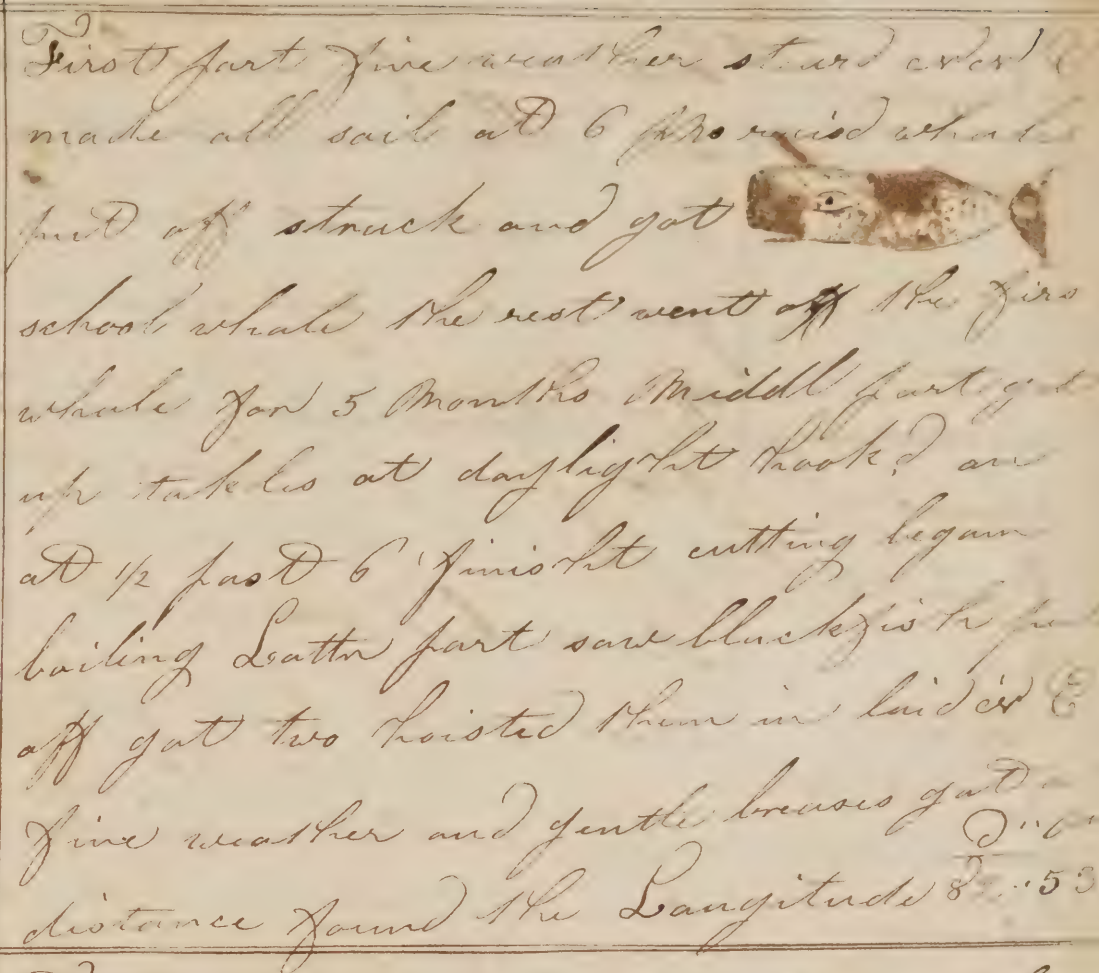 First part fine weather steard
made all sail at 6 PM raisd whales
put off struck and got
school whale the rest went off the firs
whale for 5 Months Middl part got
up takles at daylight hook.d on
at 1/2 past 6 finisht cutting began
boiling Lattr part saw blackfish put
off got two hoisted them in laid
fine weather and gentle breases got
distance found the Longitude 8 55